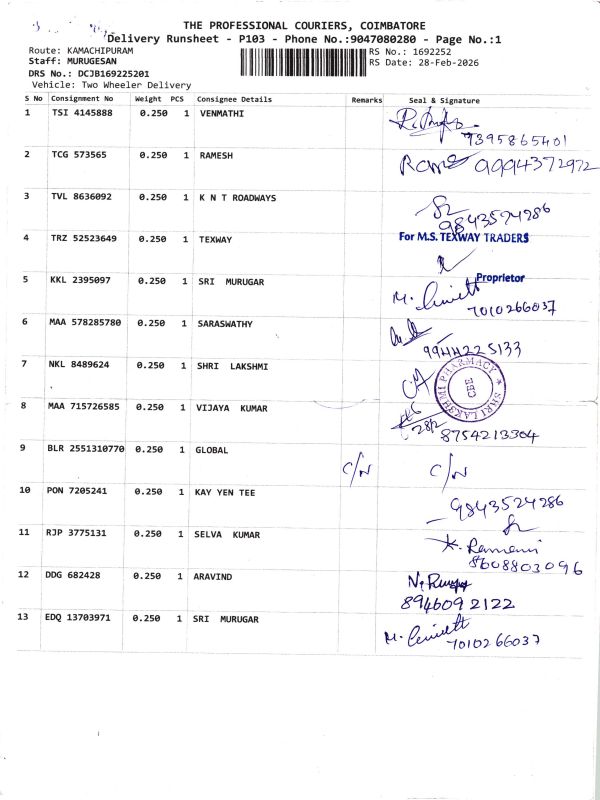 THE PROFESSIONAL COURIERS, COIMBATORE
Delivery Runsheet - P103 - Phone No.:9047080280 - Page No.:1
Route: KAMACHIPURAM RS No.: 1692252
Staff: MURUGESAN RS Date: 28-Feb-2026
DRS No.: DCJB169225201
Vehicle: Two Wheeler Delivery
S No Consignment No Weight PCS Consignee Details Remarks Seal & Signature
1 TSI 4145888 0.250 1 VENMATHI
9395865401
2 TCG 573565 0.250 1 RAMESH 9994372972
3 TVL 8636092 0.250 1 K N T ROADWAYS
9843524286
4 TRZ 52523649 0.250 1 TEXWAY For M.S. TEXWAY TRADERS
Proprietor
5 KKL 2395097 0.250 1 SRI MURUGAR M.
7010266037
6 MAA 578285780 0.250 1 SARASWATHY
9944225133
7 NKL 8489624 0.250 1 SHRI LAKSHMI
SHRI LAKSHMI PHARMACY CBE
8 MAA 715726585 0.250 1 VIJAYA KUMAR
28/2 8754213304
9 BLR 2551310770 0.250 1 GLOBAL C/N C/N
10 PON 7205241 0.250 1 KAY YEN TEE 9843524286
11 RJP 3775131 0.250 1 SELVA KUMAR
8608803096
12 DDG 682428 0.250 1 ARAVIND
8946092122
13 EDQ 13703971 0.250 1 SRI MURUGAR M.
7010266037